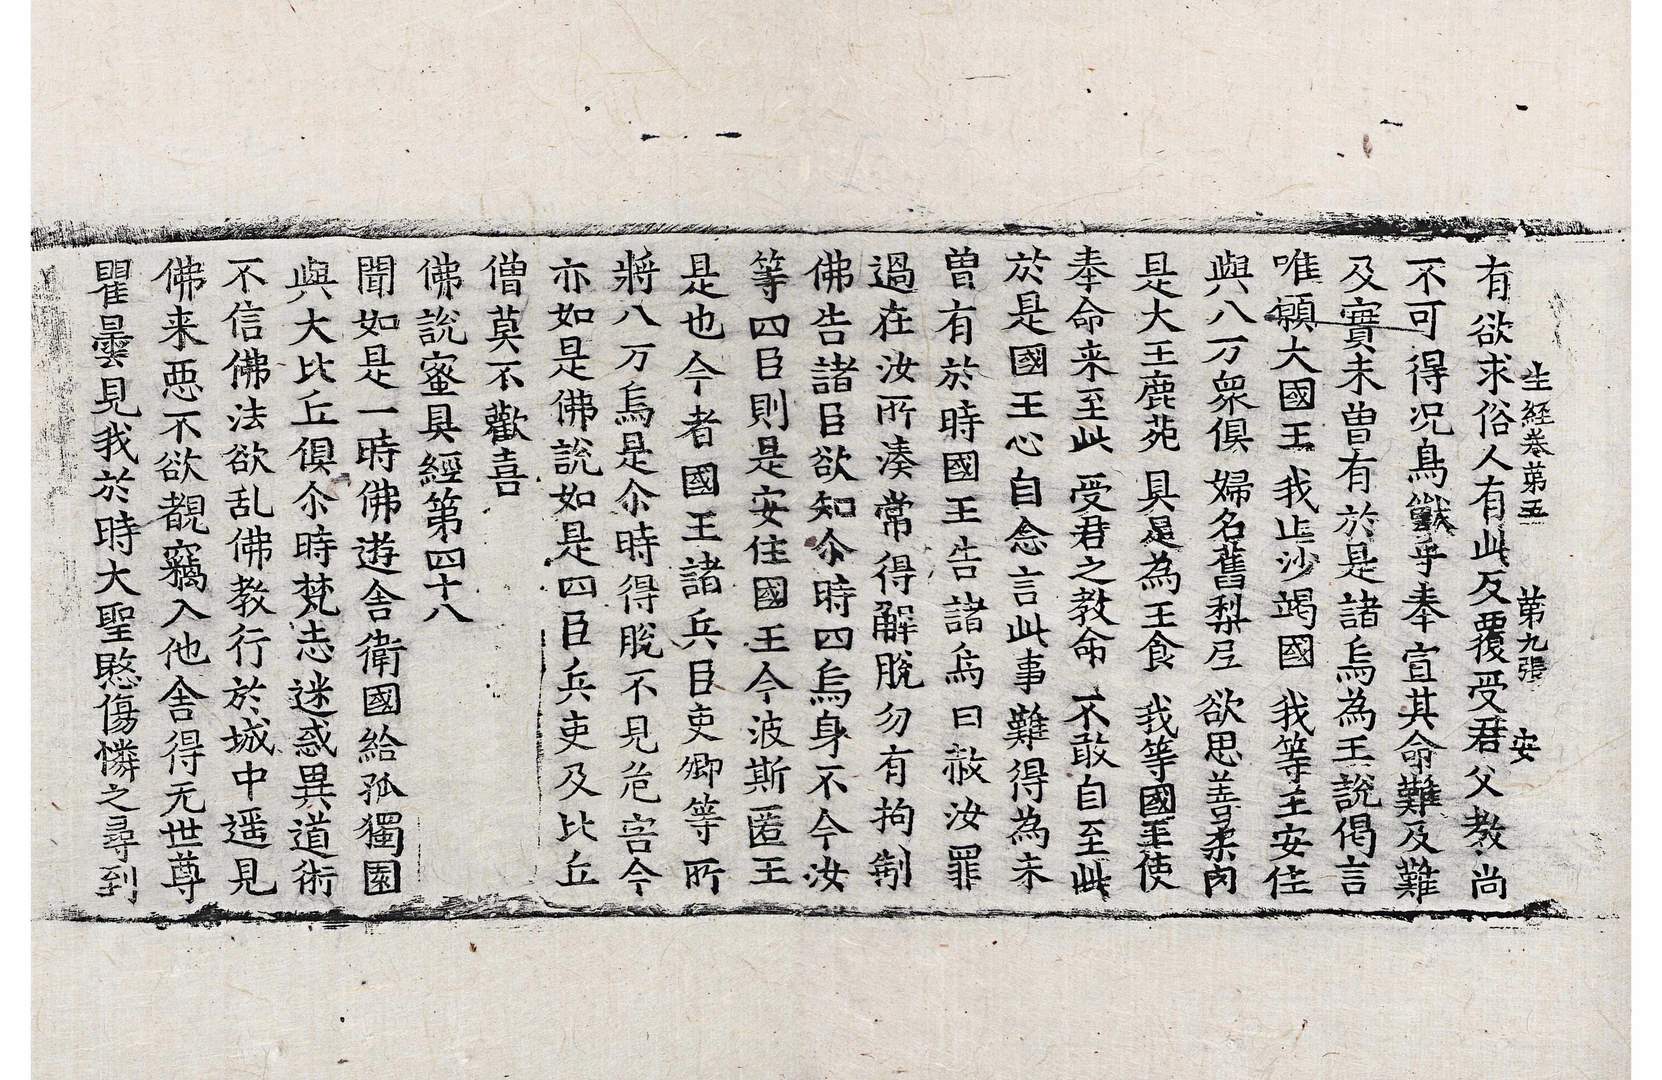 生經卷第五 第九張 安
有欲求俗人有此反覆受君父教尚
不可得况鳥獸乎奉宣其命難及難
及實未曾有於是諸烏為王說偈言
唯願大國王 我止沙竭國 我等主安住
與八万衆俱 婦名舊梨尼 欲思善柔肉
是大王鹿苑 具是為王食 我等國王使
奉命来至此 受君之教命 不敢自至此
於是國王心自念言此事難得為未
曽有於時國王告諸烏曰赦汝罪
過在汝所湊常得解脫勿有拘制
佛告諸臣欲知尒時四烏身不今汝
等四臣則是安住國王今波斯匿王
是也今者國王諸兵臣吏卿等所
將八万烏是尒時得脫不見危害今
亦如是佛說如是四臣兵吏及比丘
僧莫不歡喜
佛說蜜具經第四十八
聞如是一時佛遊舍衛國給孤獨園
與大比丘俱尒時梵志迷惑異道術
不信佛法欲乱佛教行於城中遥見
佛来惡不欲覩竊入他舍得无世尊
瞿曇見我於時大聖愍傷憐之尋到